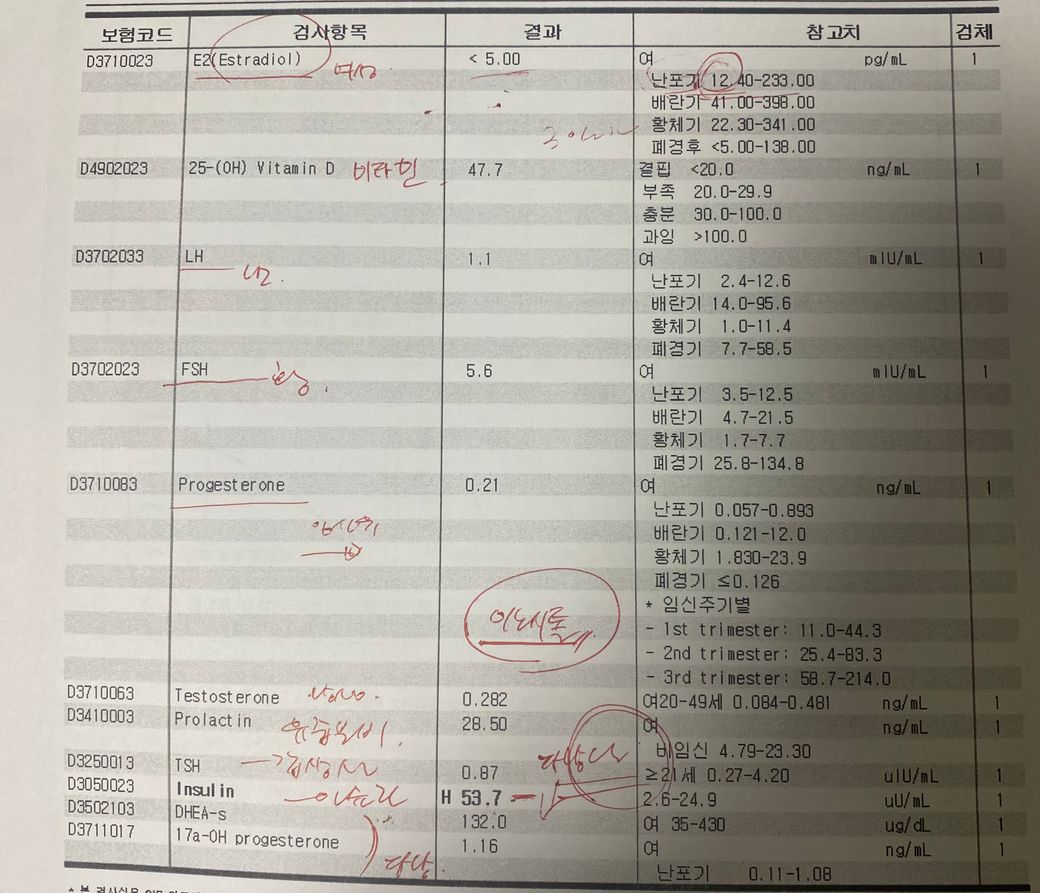 보험코드 검사항목 결과 참고치 검체
D3710023 E2(Estradiol) 여성 < 5.00 여 pg/mL 1
난포기 12.40-233.00
배란기 41.00-398.00
황체기 22.30-341.00
폐경후 <5.00-138.00
D4902023 25-(OH) Vitamin D 비타민 47.7 결핍 <20.0 ng/mL 1
부족 20.0-29.9
충분 30.0-100.0
과잉 >100.0
D3702033 LH 1.1 여 mIU/mL 1
난포기 2.4-12.6
배란기 14.0-95.6
황체기 1.0-11.4
폐경기 7.7-58.5
D3702023 FSH 5.6 여 mIU/mL 1
난포기 3.5-12.5
배란기 4.7-21.5
황체기 1.7-7.7
폐경기 25.8-134.8
D3710083 Progesterone 0.21 여 ng/mL 1
난포기 0.057-0.893
배란기 0.121-12.0
황체기 1.830-23.9
폐경기 ≤0.126
* 임신주기별
이노시톨
- 1st trimester: 11.0-44.3
- 2nd trimester: 25.4-83.3
- 3rd trimester: 58.7-214.0
D3710063 Testosterone 남성 0.282 여20-49세 0.084-0.481 ng/mL 1
D3410003 Prolactin 유즙분비 28.50 여 ng/mL 1
비임신 4.79-23.30
D3250013 TSH 갑상선 0.87 ≥21세 0.27-4.20 uIU/mL 1
D3050023 Insulin 인슐린 H 53.7 2.6-24.9 uU/mL 1
D3502103 DHEA-s 132.0 여 35-430 ug/dL 1
D3711017 17a-OH progesterone 다낭 1.16 여 ng/mL 1
난포기 0.11-1.08